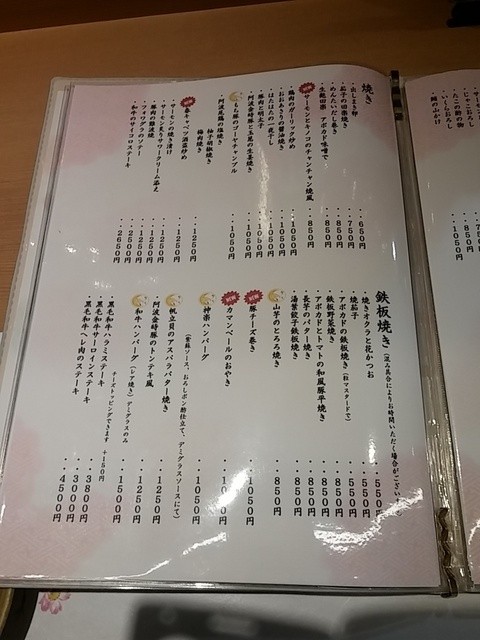 焼き
・出しまき卵・・・650円
・茄子の田楽焼き・・・750円
・めんたいだし巻き・・・850円
・生麩田楽 アボカド味噌で・・・850円
NEW サーモンとキノコのチャンチャン焼風・・・850円
・鶏肉のガーリック炒め・・・1050円
・おおあさり醤油焼き・・・1050円
・はたはたの一夜干し・・・1050円
・豚肉と明太子
・阿波金時豚と玉葱の生姜焼き・・・1050円
もち豚のゴーヤチャンプル・・・1050円
・阿波尾鶏の塩焼き
柚子胡椒焼き
梅肉焼き・・・1250円
NEW 春キャベツ酒盗炒め・・・1250円
・サーモンの焼き漬け・・・1250円
・サーモン炙りサワークリーム添え・・・1250円
・豚角の難波焼・・・1250円
・フォアグラのソテー・・・2250円
・和牛のサイコロステーキ・・・2650円
鉄板焼き(混み具合によりお時間いただく場合がございます。)
・焼きオクラと花かつお・・・550円
・焼茄子・・・550円
・アボカドの鉄板焼き(粒マスタードで)・・・550円
・鉄板野菜焼き・・・850円
・アボカドとトマトの和風豚平焼き・・・850円
・長芋のバター焼き・・・850円
・湯葉餃子鉄板焼き・・・850円
山芋のとろろ焼き・・・850円
NEW 豚チーズ巻き・・・1050円
NEW カマンベールのおやき
神楽ハンバーグ・・・1050円
(紫蘇ソース、おろしポン酢仕立て、デミグラスソースにて)
帆立貝のアスパラバター焼き・・・1250円
・阿波金時豚のトンテキ風・・・1250円
和牛ハンバーグ(レア焼き)デミグラスのみ・・・1500円
チーズトッピングできます +150円
・黒毛和牛ハラミステーキ・・・3800円
・黒毛和牛サーロインステーキ・・・3000円
・黒毛和牛ヒレ肉のステーキ・・・4500円
じゃこおろし
たこの酢の物
いくらおろし
鯛の山かけ